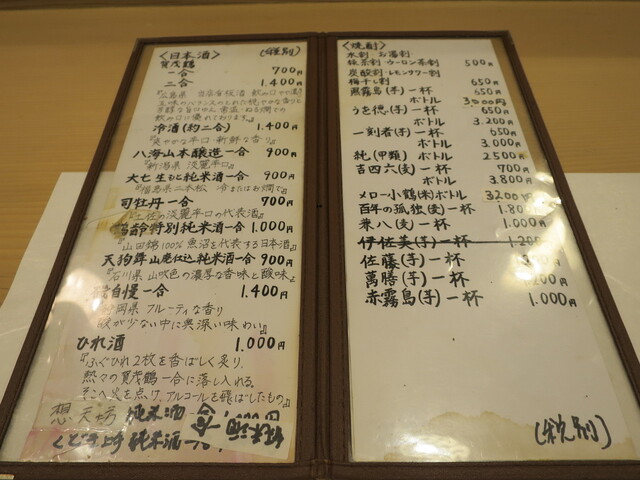 〈日本酒〉 (税別)
賀茂鶴
一合 700円
二合 1.400円
冷酒(約二合) 1.400円
爽やかな辛口・新鮮な香り
八海山本醸造一合 900円
『新潟県 淡麗辛口』
大七 生もと純米酒一合 900円
『福島県二本松 冷またはお燗で』
司牡丹一合 700円
土佐の淡麗辛口の代表酒
鶴齢特別純米酒一合 1.000円
山田錦100% 魚沼を代表する日本酒
天狗舞山廃仕込純米酒一合 900円
石川県 山吹色の濃厚な香味と酸味
自慢一合 1.400円
静岡県 フルーティな香り
酸が少ない中に奥深い味わい』
ひれ酒 1.000円
『ふぐひれ2枚を香ばしく炙り、
熱々の賀茂鶴一合に落し入れる。
そこへ火を点け、アルコールを飛ばしたもの』
想 天坊 純米酒 一合
くどき上手 純米酒一合
〈焼酎〉
水割・お湯割
緑茶割・ウーロン茶割 500円
炭酸割・レモンサワー割
梅干し割 650円
黒霧島(芋)一杯 650円
ボトル 3000円
一杯 650円
ボトル 3.200円
一刻者(芋)一杯 650円
ボトル 3.000円
純(甲類) ボトル 2500円
吉四六(麦)一杯 700円
ボトル 3.800円
メロー小鶴(米)ボトル 3200円
百年の孤独(麦)一杯 1.800円
兼八(麦)一杯 1.000円
伊佐美(芋)一杯 1.200
佐藤(芋)一杯
萬膳(芋)一杯
赤霧島(芋)一杯 1.000円
(税別)